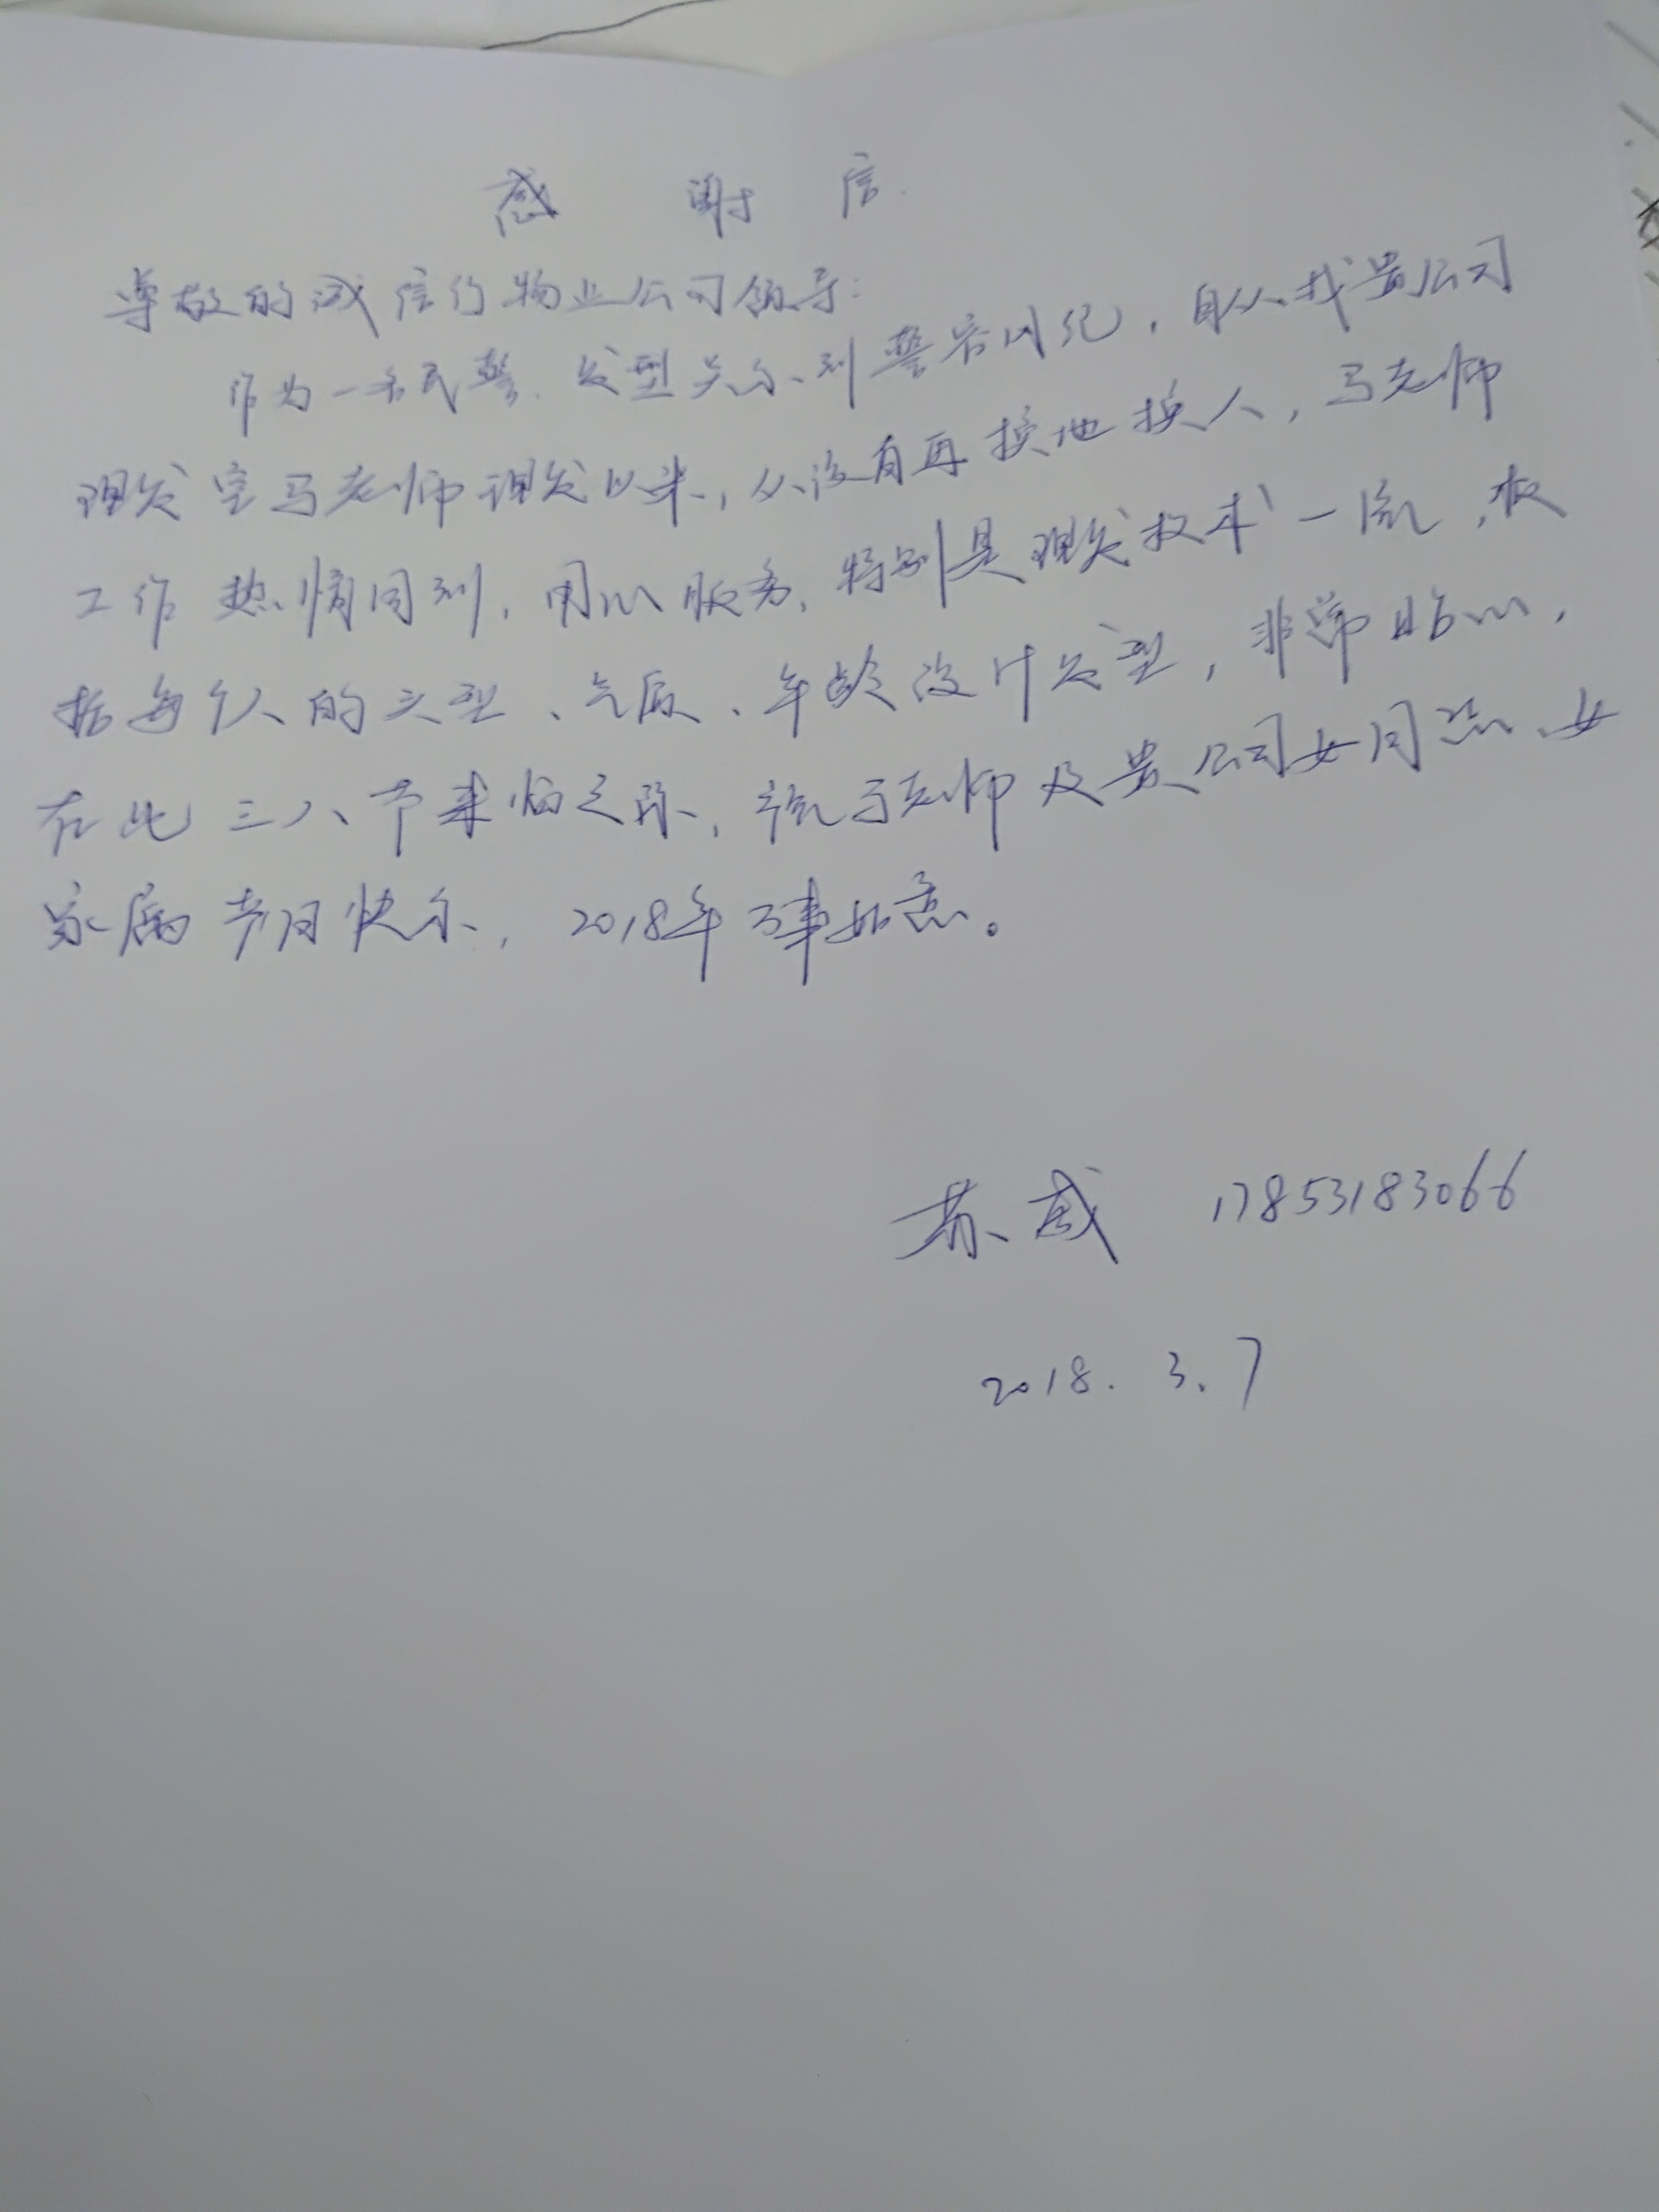 感谢信
尊敬的诚信行物业公司领导:
作为一名民警、发型关系到警容风纪,自从找贵公司
理发室马老师理发以来,从没有再换地换人,马老师
工作热情周到,用心服务,特别是理发技术一流,根
据每个人的头型、气质、年龄设计发型,非常贴心,
在此三八节来临之际,祝马老师及贵公司女同志、女
家属节日快乐,2018年万事如意。
苏威 17853183066
2018.3.7